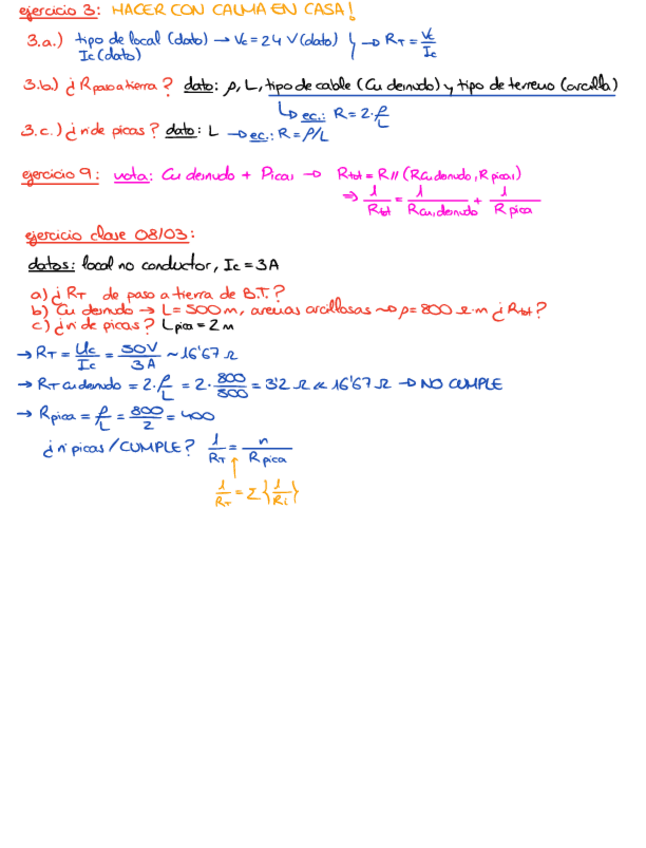 ejercicio 3: HACER CON CALMA EN CASA!
3.a.) tipo de local (dato) → Vc = 24 V (dato) } → RT = Vc/Ic
Ic (dato)
3.b.) ¿R paso a tierra? dato: ρ, L, tipo de cable (Cu desnudo) y tipo de terreno (arcilla)
↳ ec.: R = 2·ρ/L
3.c.) ¿nº de picas? dato: L → ec.: R = ρ/L
ejercicio 9: nota: Cu desnudo + Picas → Rtot = R// (RCu desnudo, Rpicas)
⇒ 1/Rtot = 1/RCu,desnudo + 1/Rpica
ejercicio clase 08/03:
datos: local no conductor, Ic = 3A
a) ¿RT de paso a tierra de B.T.?
b) Cu desnudo → L = 500m, arenas arcillosas ~> ρ = 800 Ω·m ¿Rtot?
c) ¿nº de picas? Lpica = 2m
→ RT = Uc/Ic = 50V/3A ~ 16'67 Ω
→ RT Cu desnudo = 2·ρ/L = 2·800/500 = 3'2 Ω << 16'67 Ω → NO CUMPLE
→ Rpica = ρ/L = 800/2 = 400
¿nº picas/CUMPLE? 1/RT = n/Rpica
1/RT = Σ{1/Ri}